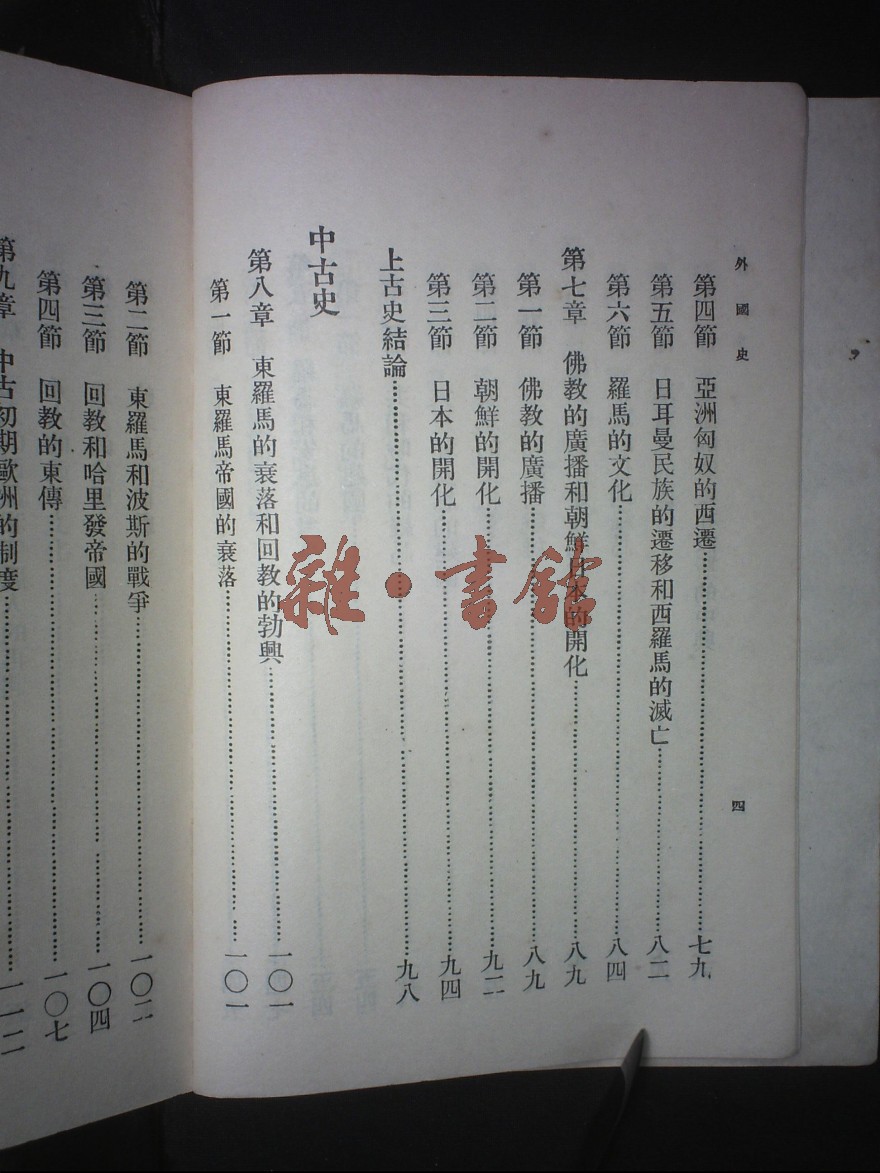 外國史
四
第四節 亞洲匈奴的西遷………七九
第五節 日耳曼民族的遷移和西羅馬的滅亡………八二
第六節 羅馬的文化………八四
第七章 佛教的廣播和朝鮮日本的開化………八九
第一節 佛教的廣播………八九
第二節 朝鮮的開化………九二
第三節 日本的開化………九四
上古史結論………九八
中古史
第八章 東羅馬的衰落和回教的勃興………一〇一
第一節 東羅馬帝國的衰落………一〇一
第二節 東羅馬和波斯的戰爭………一〇二
第三節 回教和哈里發帝國………一〇四
第四節 回教的東傳………一〇七
第九章 中古初期歐洲的制度………一一二
雜·書館